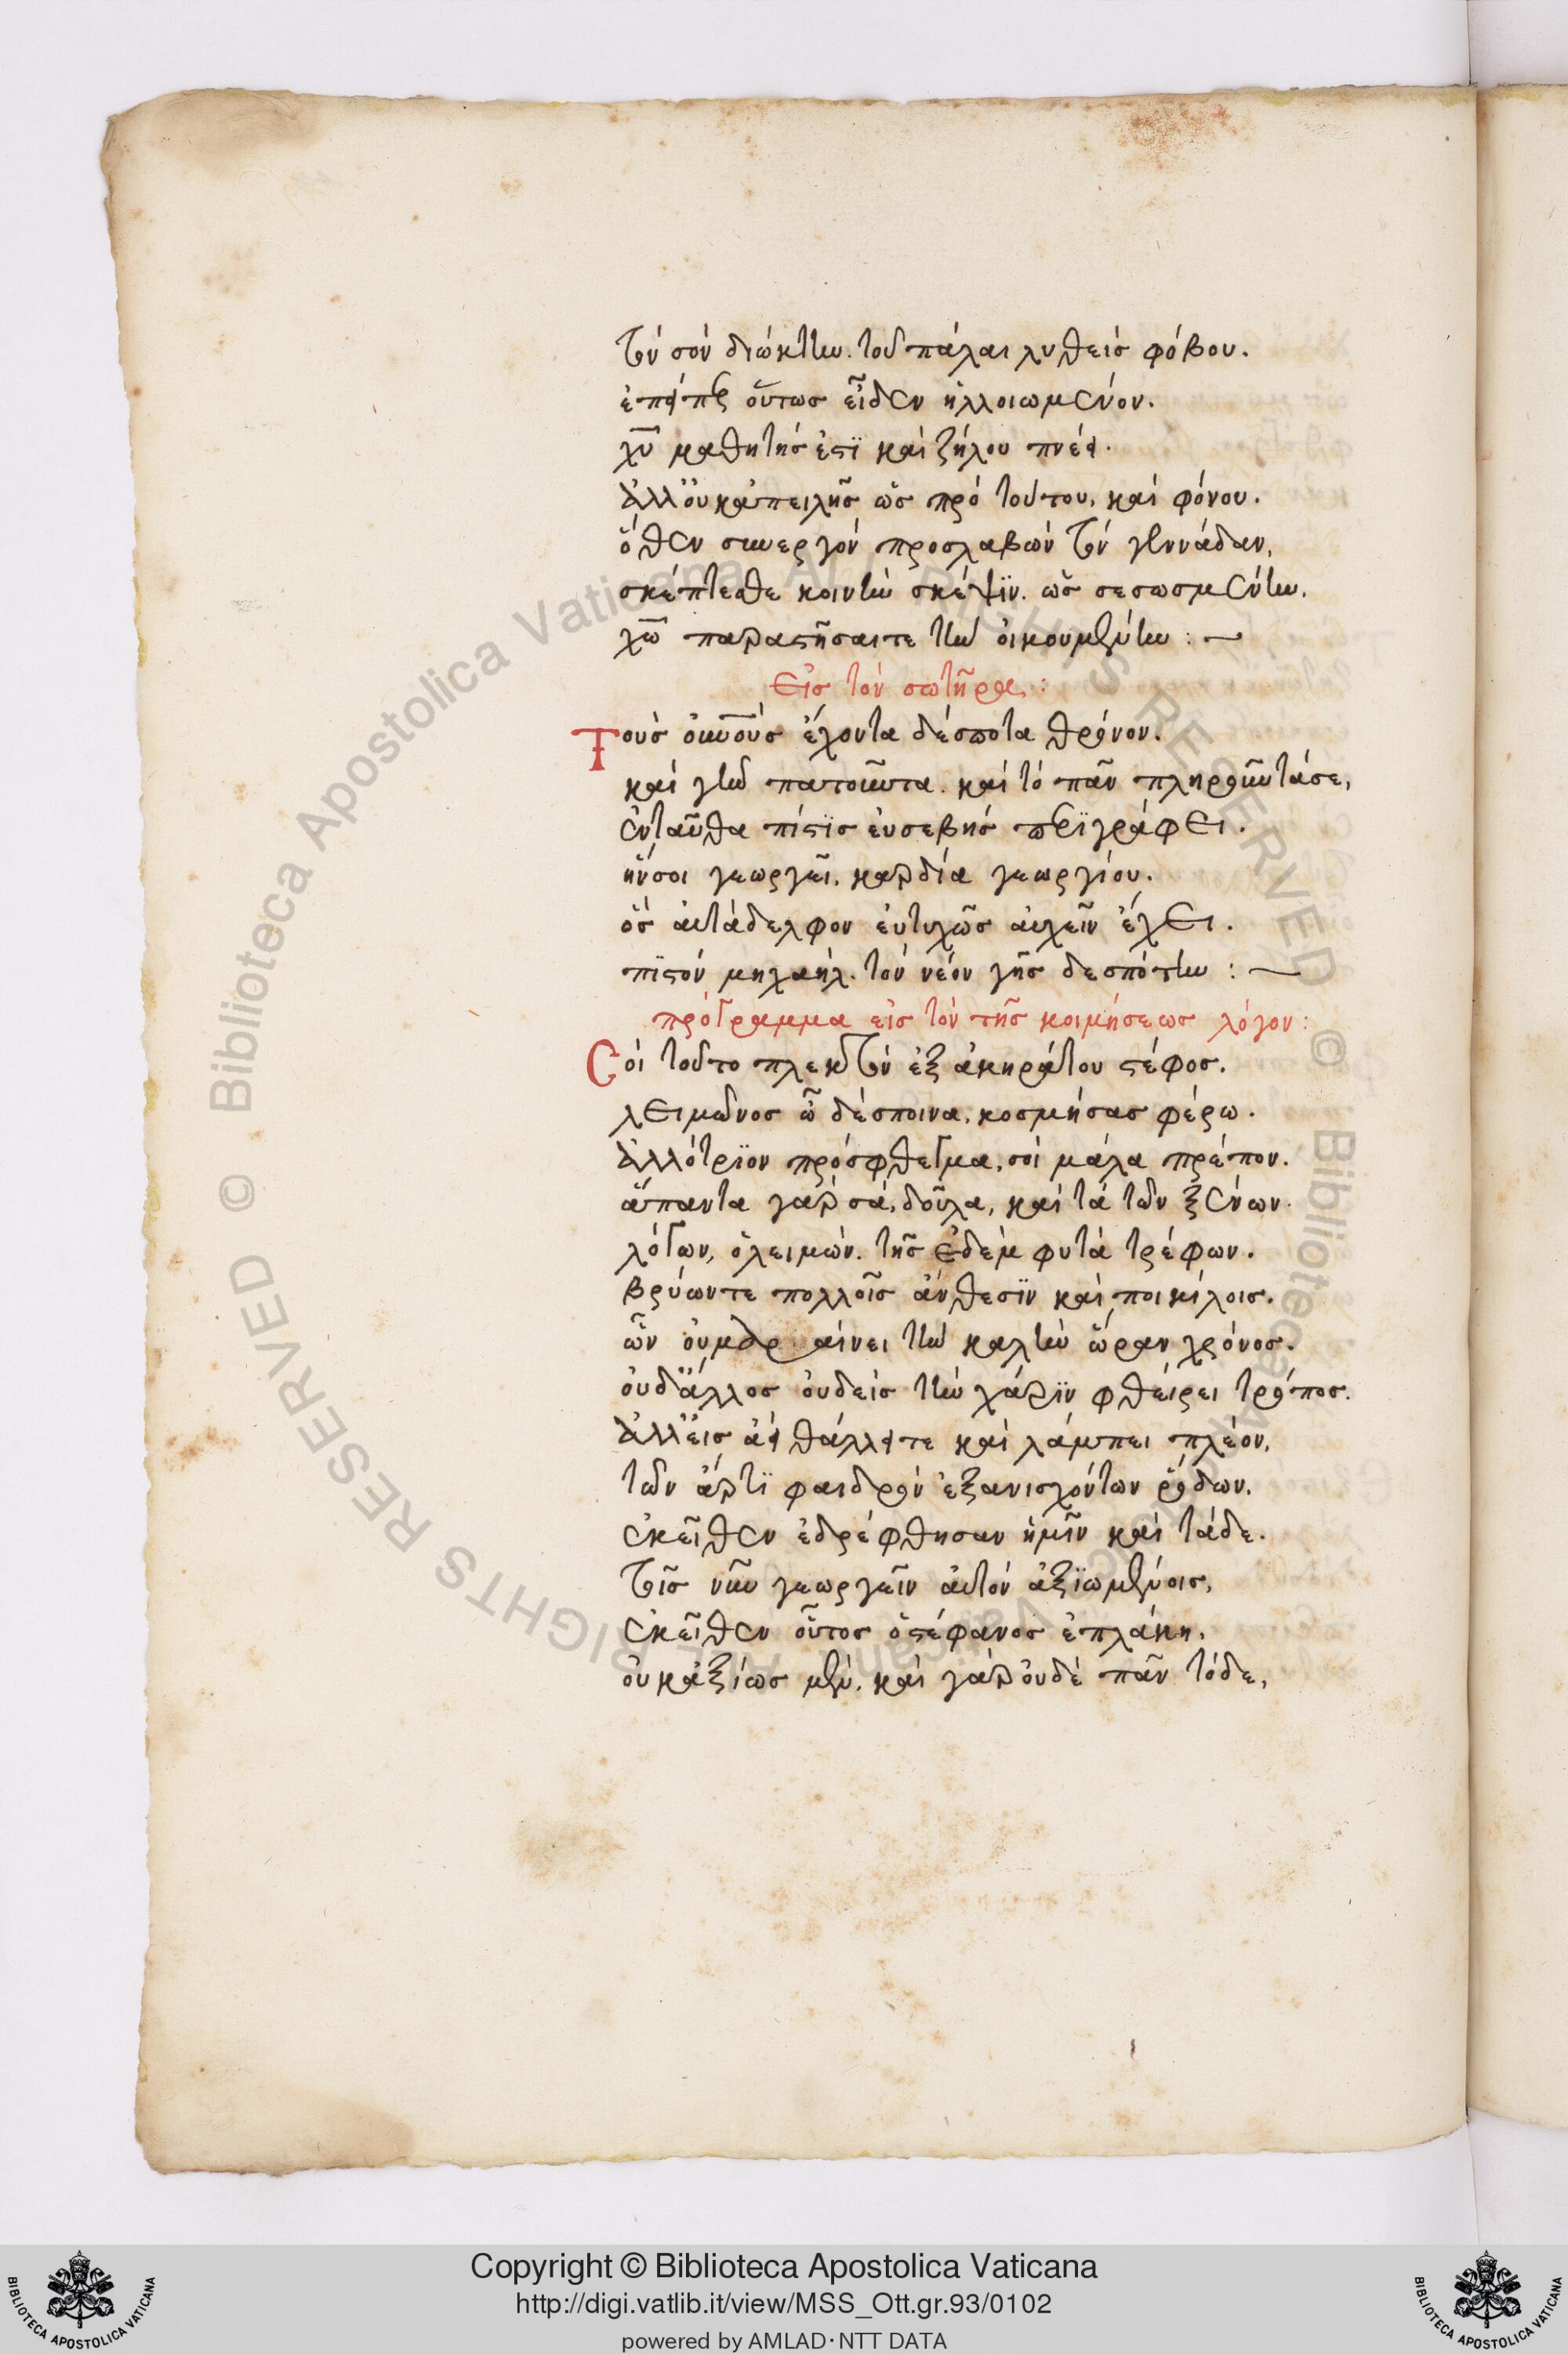 τὸν σὸν διώκτην. τοῦ πάλαι λυθεὶς φόβου.
ἐπείπερ οὕτως εἶδεν ἠλλοιωμένον.
χῦ μαθητής ἐστὶ καὶ ζήλου πνέει.
ἀλλ' οὐκ ἀπειλῆς ὡς πρὸ τούτου, καὶ φόνου.
ὅθεν συνεργὸν προσλαβὼν τὸν γεννάδαν,
σκέπτεσθε κοινὴν σκέψϊν. ὡς σεσωσμένην,
χῶ παραστήσαιτε τὴν οἰκουμένην : —
Εἰς τὸν σωτῆρα :
Τοὺς οὐνοὺς ἔχοντα δέσποτα θρόνον.
καὶ γῆν πατοῦντα. καὶ τὸ πᾶν πληροῦντά σε,
ἐνταῦθα πίστϊς εὐσεβὴς περϊγράφει.
ἥν σοι γεωργεῖ, καρδία γεωργίου.
ὃς αὐτάδελφον εὐτυχῶς αὐχεῖν ἔχει.
πϊστὸν μηχαήλ. τὸν νέον γῆς δεσπότην : —
πρόγραμμα εἰς τὸν τῆς κοιμήσεως λόγον :
Σοὶ τοῦτο πλεκτὸν ἐξ ἀκηράτου στέφος.
λειμῶνος ὦ δέσποινα, κοσμήσας φέρω.
ἀλλότρϊον πρόσφθεγμα, σοὶ μάλα πρέπον.
ἅπαντα γὰρ σά, δοῦλα, καὶ τὰ τῶν ξένων.
λόγων, ὁ λειμών. τῆς ἐδὲμ φυτὰ τρέφων.
βρύων τε πολλοῖς ἄνθεσϊν καὶ ποικίλοις.
ὧν οὐ μαραίνει τὴν καλὴν ὥραν χρόνος.
οὐδ' ἄλλος οὐδεὶς τὴν χάρϊν φθείρει τρόπος.
ἀλλ' εἰς ἀεὶ θάλλει τε καὶ λάμπει πλέον,
τῶν ἄρτϊ φαιδρὸν ἐξανισχόντων ῥόδων.
ἐκεῖθεν ἐδρέφθησαν ἡμῖν καὶ τάδε.
τοῖς νῦν γεωργεῖν αὐτὸν ἀξϊωμένοις,
ἐκεῖθεν οὗτος ὁ στέφανος ἐπλάκη.
οὐκ ἀξίως μέν, καὶ γὰρ οὐδὲ πᾶν τόδε,
Copyright © Biblioteca Apostolica Vaticana
http://digi.vatlib.it/view/MSS_Ott.gr.93/0102
powered by AMLAD·NTT DATA